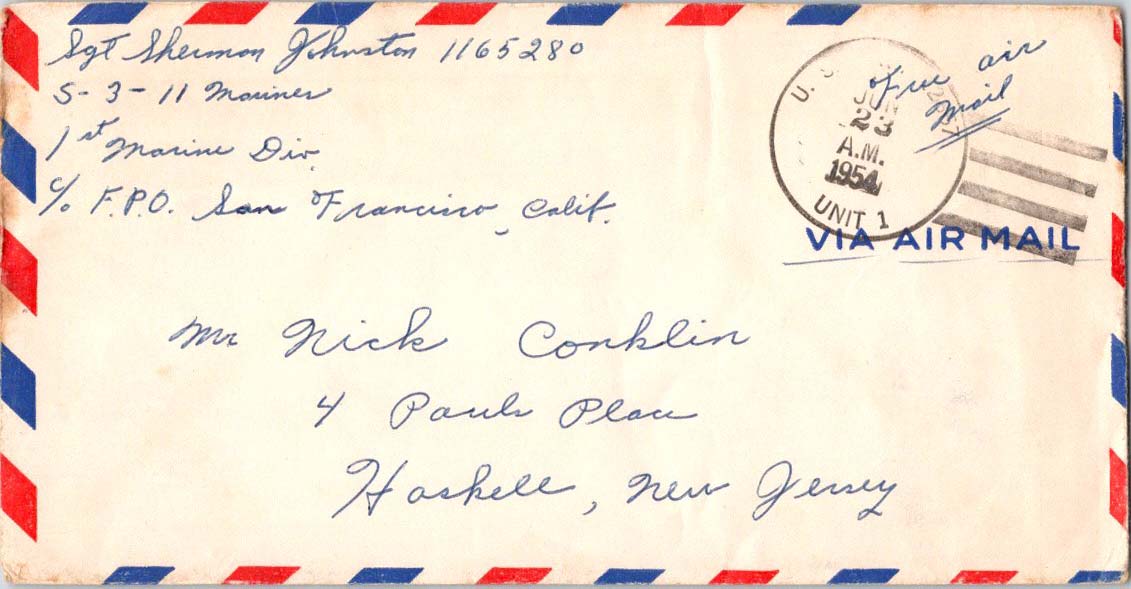 Sgt Sherman Johnston 1165280
S-3-11 Marines
1st Marine Div.
c/o F.P.O. San Francisco, Calif.
Free air
Mail
U. S.
JUN
23
A.M.
1954
UNIT 1
VIA AIR MAIL
Mr Nick Conklin
4 Pauls Place
Haskell, New Jersey